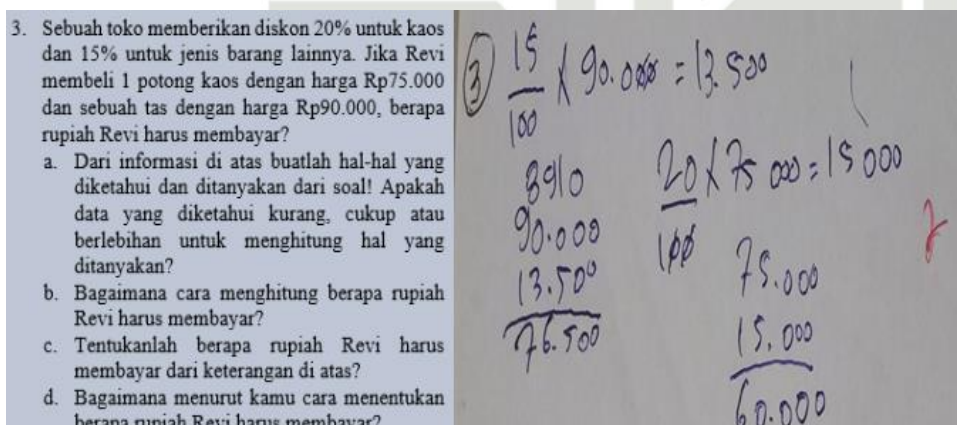 3. Sebuah toko memberikan diskon 20% untuk kaos
dan 15% untuk jenis barang lainnya. Jika Revi
membeli 1 potong kaos dengan harga Rp75.000
dan sebuah tas dengan harga Rp90.000, berapa
rupiah Revi harus membayar?
a. Dari informasi di atas buatlah hal-hal yang
diketahui dan ditanyakan dari soal! Apakah
data yang diketahui kurang, cukup atau
berlebihan untuk menghitung hal yang
ditanyakan?
b. Bagaimana cara menghitung berapa rupiah
Revi harus membayar?
c. Tentukanlah berapa rupiah Revi harus
membayar dari keterangan di atas?
d. Bagaimana menurut kamu cara menentukan
berapa rupiah Revi harus membayar?
3 15
100 x 90.000 = 13.500
8910
90.000
13.500
76.500
20 x 75 000 = 15 000
100
75.000
15.000
60.000